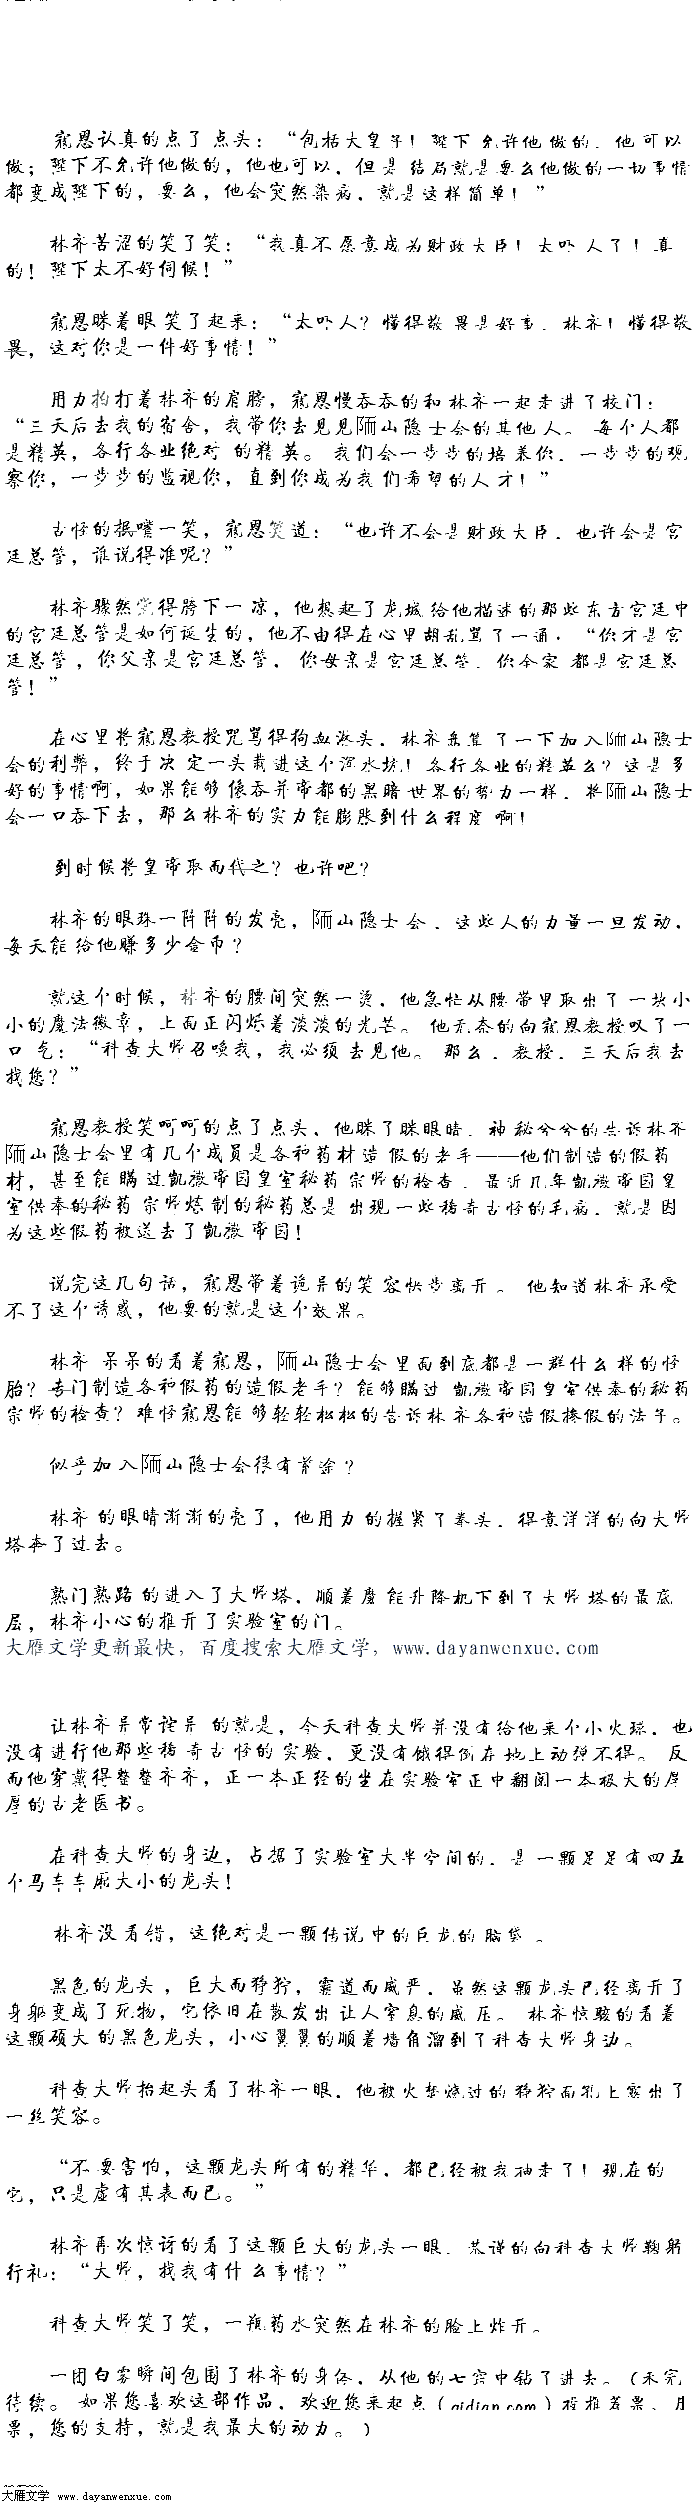 寇恩认真的点了点头：“包括大皇子！陛下允许他做的，他可以
做；陛下不允许他做的，他也可以，但是结局就是要么他做的一切事情
都变成陛下的，要么，他会突然染病，就是这样简单！”
林齐苦涩的笑了笑：“我真不愿意成为财政大臣！太吓人了！真
的！陛下太不好伺候！”
寇恩眯着眼笑了起来：“太吓人？懂得敬畏是好事，林齐！懂得敬
畏，这对你是一件好事情！”
用力拍打着林齐的肩膀，寇恩慢吞吞的和林齐一起走进了校门：
“三天后去我的宿舍，我带你去见见陋山隐士会的其他人。每个人都
是精英，各行各业绝对的精英。我们会一步步的培养你，一步步的观
察你，一步步的监视你，直到你成为我们希望的人才！”
古怪的抿嘴一笑，寇恩笑道：“也许不会是财政大臣，也许会是宫
廷总管，谁说得准呢？”
林齐骤然觉得胯下一凉，他想起了龙城给他描述的那些东方宫廷中
的宫廷总管是如何诞生的，他不由得在心里胡乱骂了一通，“你才是宫
廷总管，你父亲是宫廷总管，你母亲是宫廷总管，你全家都是宫廷总
管！”
在心里将寇恩教授咒骂得狗血淋头，林齐盘算了一下加入陋山隐士
会的利弊，终于决定一头栽进这个深水坑！各行各业的精英么？这是多
好的事情啊，如果能够像吞并帝都的黑暗世界的势力一样，将陋山隐士
会一口吞下去，那么林齐的实力能膨胀到什么程度啊！
到时候将皇帝取而代之？也许吧？
林齐的眼珠一阵阵的发亮，陋山隐士会，这些人的力量一旦发动，
每天能给他赚多少金币？
就这个时候，林齐的腰间突然一烫，他急忙从腰带里取出了一块小
小的魔法徽章，上面正闪烁着淡淡的光芒。他无奈的向寇恩教授叹了一
口气：“科查大师召唤我，我必须去见他。那么，教授，三天后我去
找您？”
寇恩教授笑呵呵的点了点头，他眯了眯眼睛，神秘兮兮的告诉林齐
陋山隐士会里有几个成员是各种药材造假的老手——他们制造的假药
材，甚至能瞒过凯撒帝国皇室秘药宗师的检查，最近几年凯撒帝国皇
室供奉的秘药宗师炼制的秘药总是出现一些稀奇古怪的毛病，就是因
为这些假药被送去了凯撒帝国！
说完这几句话，寇恩带着诡异的笑容快步离开。他知道林齐承受
不了这个诱惑，他要的就是这个效果。
林齐呆呆的看着寇恩，陋山隐士会里面到底都是一群什么样的怪
胎？专门制造各种假药的造假老手？能够瞒过凯撒帝国皇室供奉的秘药
宗师的检查？难怪寇恩能够轻轻松松的告诉林齐各种造假掺假的法子。
似乎加入陋山隐士会很有前途？
林齐的眼睛渐渐的亮了，他用力的握紧了拳头，得意洋洋的向大师
塔奔了过去。
熟门熟路的进入了大师塔，顺着魔能升降机下到了大师塔的最底
层，林齐小心的推开了实验室的门。
大雁文学更新最快，百度搜索大雁文学，www.dayanwenxue.com
让林齐异常诧异的就是，今天科查大师并没有给他来个小火球，也
没有进行他那些稀奇古怪的实验，更没有饿得倒在地上动弹不得。反
而他穿戴得整整齐齐，正一本正经的坐在实验室正中翻阅一本极大的厚
厚的古老医书。
在科查大师的身边，占据了实验室大半空间的，是一颗足足有四五
个马车车厢大小的龙头！
林齐没看错，这绝对是一颗传说中的巨龙的脑袋。
黑色的龙头，巨大而狰狞，霸道而威严，虽然这颗龙头已经离开了
身躯变成了死物，它依旧在散发出让人窒息的威压。林齐惊骇的看着
这颗硕大的黑色龙头，小心翼翼的顺着墙角溜到了科查大师身边。
科查大师抬起头看了林齐一眼，他被火焰烧过的狰狞面孔上露出了
一丝笑容。
“不要害怕，这颗龙头所有的精华，都已经被我抽走了！现在的
它，只是虚有其表而已。”
林齐再次惊讶的看了这颗巨大的龙头一眼，恭谨的向科查大师鞠躬
行礼：“大师，找我有什么事情？”
科查大师笑了笑，一瓶药水突然在林齐的脸上炸开。
一团白雾瞬间包围了林齐的身体，从他的七窍中钻了进去。（未完
待续。如果您喜欢这部作品，欢迎您来起点（qidian.com）投推荐票、月
票，您的支持，就是我最大的动力。）
大雁文学 www.dayanwenxue.com